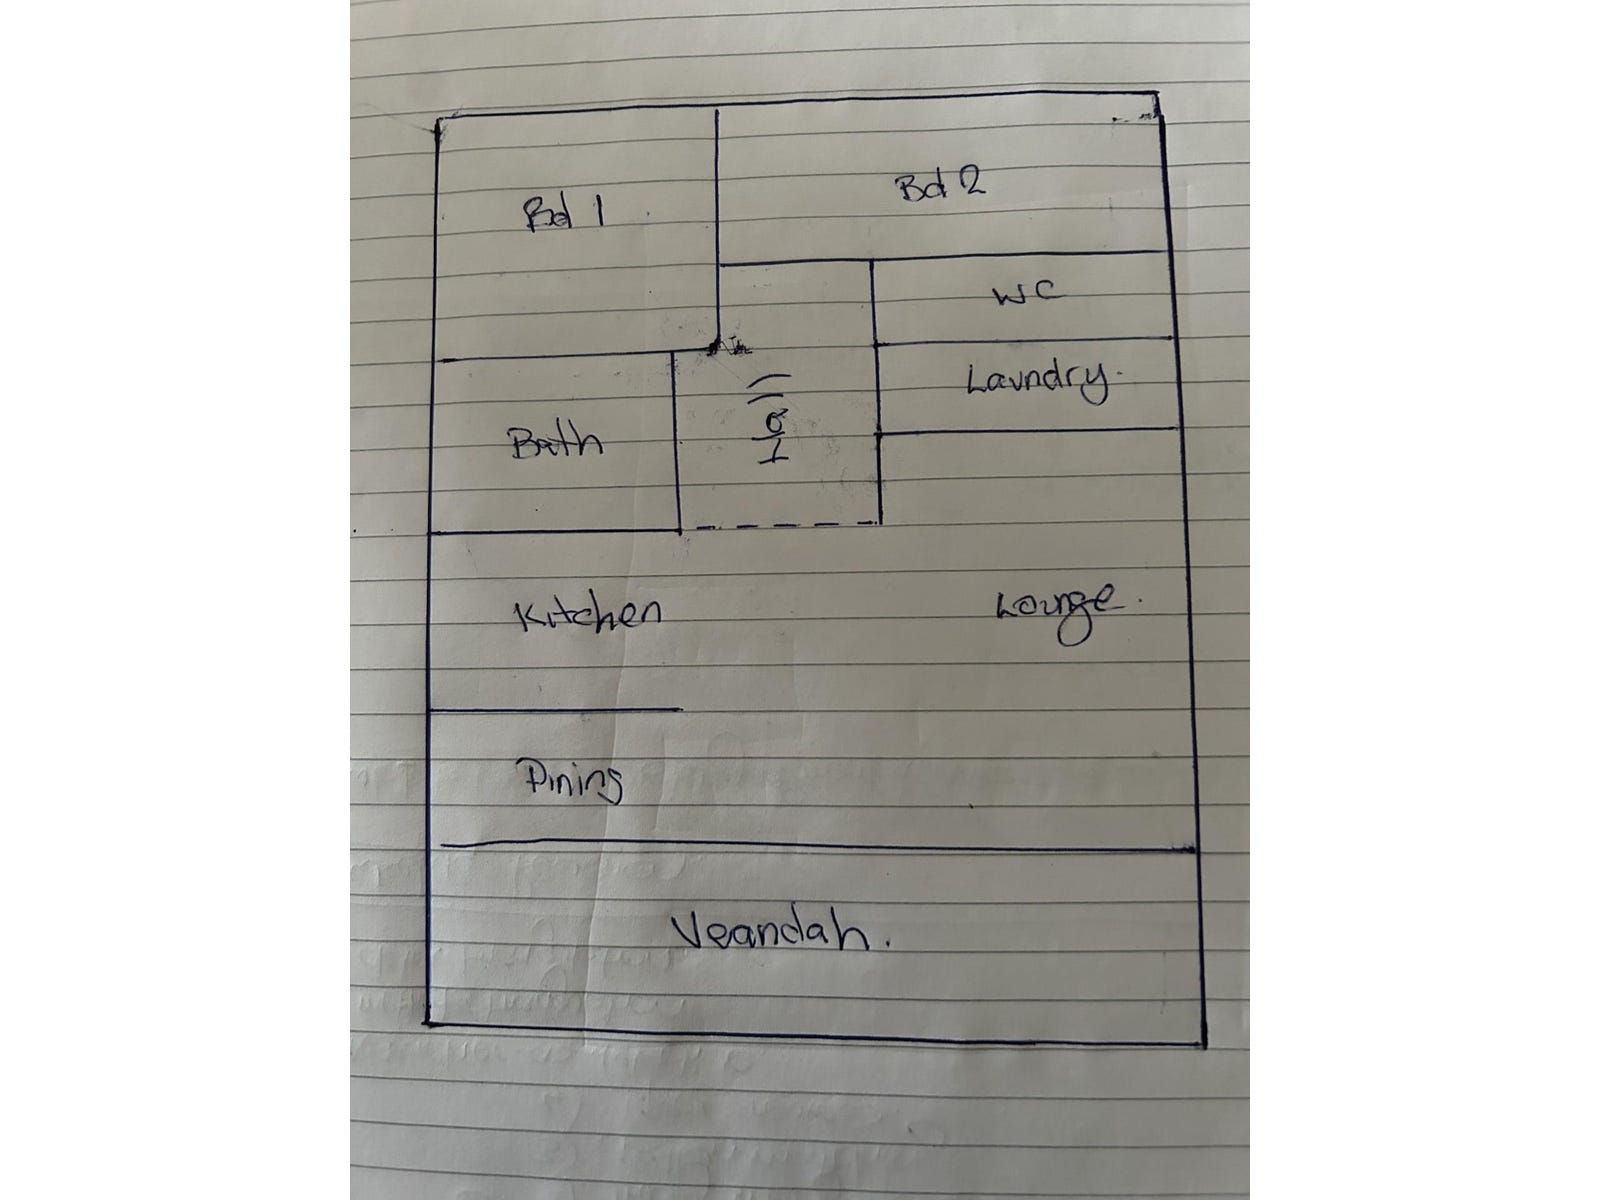 Bd 1
Bd 2
WC
Laundry.
Hall
Bath
Kitchen
Lounge.
Dining
Veandah.